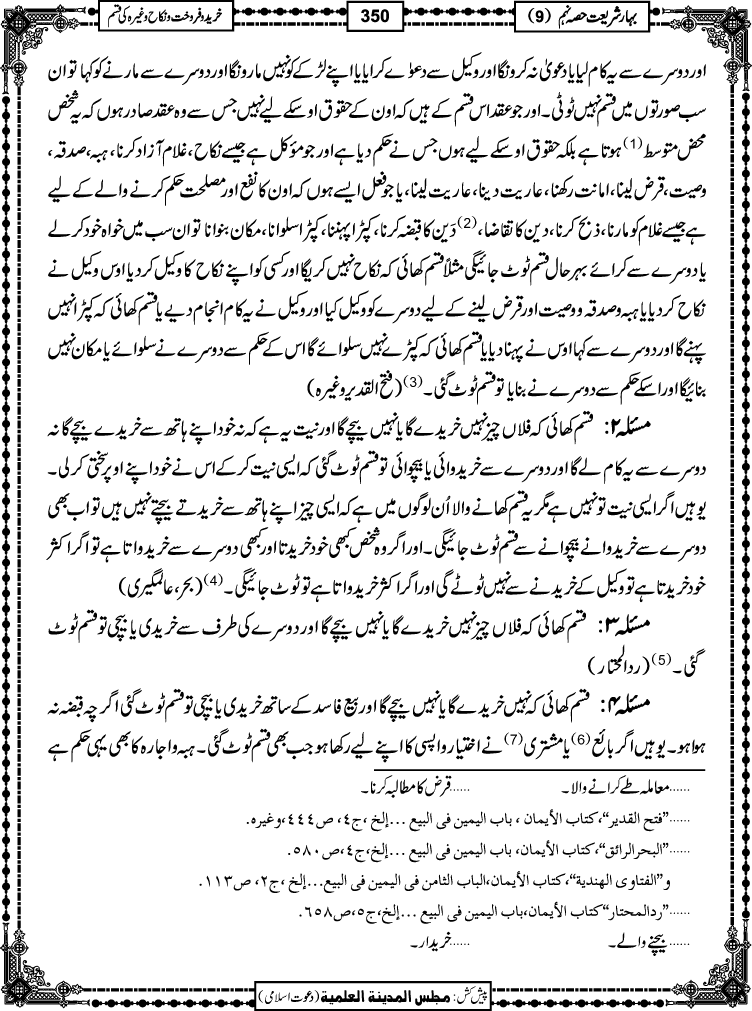 بہار شریعت حصہ نہم (9)
350
خرید و فروخت و نکاح وغیرہ کی قسم
اور دوسرے سے یہ کام لیا یا دعویٰ نہ کرونگا اور وکیل سے دعوے کرایا یا اپنے لڑکے کو نہیں مارونگا اور دوسرے سے مارنے کو کہا تو ان
سب صورتوں میں قسم نہیں ٹوٹی۔ اور جو عقد اس قسم کے ہیں کہ اون کے حقوق اوسکے لیے نہیں جس سے وہ عقد صادر ہوں کہ یہ شخص
محض متوسط (1) ہوتا ہے بلکہ حقوق اوسکے لیے ہوں جس نے حکم دیا ہے اور جو مؤکل ہے جیسے نکاح، غلام آزاد کرنا، ہبہ، صدقہ،
وصیت، قرض لینا، امانت رکھنا، عاریت دینا، عاریت لینا، یا جو فعل ایسے ہوں کہ اون کا نفع اور مصلحت حکم کرنے والے کے لیے
ہے جیسے غلام کو مارنا، ذبح کرنا، دین کا تقاضا، (2) دَین کا قبضہ کرنا، کپڑا پہننا، کپڑا سلوانا، مکان بنوانا تو ان سب میں خواہ خود کرلے
یا دوسرے سے کرائے بہرحال قسم ٹوٹ جائیگی مثلاً قسم کھائی کہ نکاح نہیں کریگا اور کسی کو اپنے نکاح کا وکیل کر دیا اوس وکیل نے
نکاح کر دیا یا ہبہ و صدقہ و وصیت اور قرض لینے کے لیے دوسرے کو وکیل کیا اور وکیل نے یہ کام انجام دیے یا قسم کھائی کہ کپڑا نہیں
پہنے گا اور دوسرے سے کہا اوس نے پہنا دیا یا قسم کھائی کہ کپڑے نہیں سلوائے گا اس کے حکم سے دوسرے نے سلوائے یا مکان نہیں
بنائیگا اور اسکے حکم سے دوسرے نے بنایا تو قسم ٹوٹ گئی۔ (3) (فتح القدیر وغیرہ)
مسئلہ ۲: قسم کھائی کہ فلاں چیز نہیں خریدے گا یا نہیں بیچے گا اور نیت یہ ہے کہ نہ خود اپنے ہاتھ سے خریدے بیچے گا نہ
دوسرے سے یہ کام لے گا اور دوسرے سے خریدوائی یا بیچوائی تو قسم ٹوٹ گئی کہ ایسی نیت کر کے اس نے خود اپنے اوپر سختی کر لی۔
یوہیں اگر ایسی نیت تو نہیں ہے مگر یہ قسم کھانے والا اُن لوگوں میں ہے کہ ایسی چیز اپنے ہاتھ سے خریدتے بیچتے نہیں ہیں تو اب بھی
دوسرے سے خریدوانے بیچوانے سے قسم ٹوٹ جائیگی۔ اور اگر وہ شخص کبھی خود خریدتا اور کبھی دوسرے سے خریدواتا ہے تو اگر اکثر
خود خریدتا ہے تو وکیل کے خریدنے سے نہیں ٹوٹے گی اور اگر اکثر خریدواتا ہے تو ٹوٹ جائیگی۔ (4) (بحر، عالمگیری)
مسئلہ ۳: قسم کھائی کہ فلاں چیز نہیں خریدے گا یا نہیں بیچے گا اور دوسرے کی طرف سے خریدی یا بیچی تو قسم ٹوٹ
گئی۔ (5) (ردالمحتار)
مسئلہ ۴: قسم کھائی کہ نہیں خریدے گا یا نہیں بیچے گا اور بیع فاسد کے ساتھ خریدی یا بیچی تو قسم ٹوٹ گئی اگرچہ قبضہ نہ
ہوا ہو۔ یوہیں اگر بائع (6) یا مشتری (7) نے اختیار واپسی کا اپنے لیے رکھا ہو جب بھی قسم ٹوٹ گئی۔ ہبہ و اجارہ کا بھی یہی حکم ہے
......معاملہ طے کرانے والا۔ ......قرض کا مطالبہ کرنا۔
......”فتح القدیر“، کتاب الأیمان، باب الیمین فی البیع...إلخ، ج٤، ص٤٤٤، وغیرہ.
......”البحرالرائق“، کتاب الأیمان، باب الیمین فی البیع...إلخ، ج٤، ص٥٨٠.
و ”الفتاوی الھندیۃ“، کتاب الأیمان، الباب الثامن فی الیمین فی البیع...إلخ، ج٢، ص١١٣.
......”ردالمحتار“ کتاب الأیمان، باب الیمین فی البیع ...إلخ، ج٥، ص٦٥٨.
......بیچنے والے۔ ......خریدار۔
پیش کش: مجلس المدینۃ العلمیۃ (دعوت اسلامی)